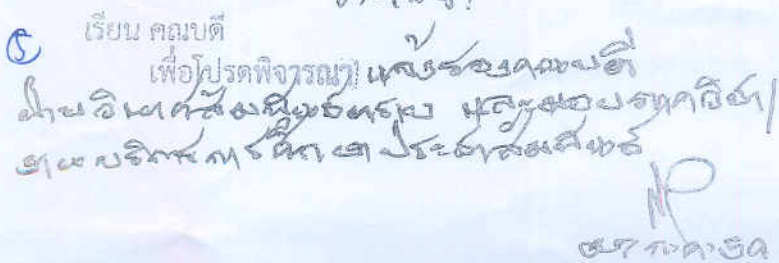 เรียน คณบดี
เพื่อโปรดพิจารณา แจ้งรองคณบดี
ฝ่ายวิเทศสัมพันธ์ทราบ และมอบภาควิชา/
งานบริการการศึกษาประชาสัมพันธ์